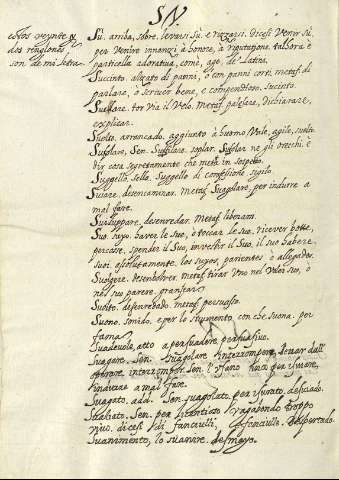 SV.
estos veynte y
dos renglones
son de mi letra
Sù. arriba, sobre. levarsi sù. e rizzarsi. dicesi Venir sù,
per Venire innanzi à honore, à riputatione. talhora è
particella adornatiua, come, age, de' Latini.
Succinto. alzato di panni, ò con panni corti. metaf. di
parlare, ò scriver bene, e compendioso. sucinto.
Suelare. tor via il Velo. metaf. palesare, dichiarare,
explicar.
Suelto, arrancado. aggiunto à huomo Vale, agile, suelto
Sufolare, Sen. soplar. Sufolar ne gli orecchi. è
dir cosa segretamente che metta in sospetto.
Suggello. sello. Suggello di confessione, sigilo
Suiare. desencaminar. Metaf. per indurre a
mal fare.
Suiluppare. desenredar. metaf. liberarsi.
Suo. suyo. haver le sue, ò toccar le sue, ricever botte,
percosse. spender il Suo, investir il Suo, il suo havere.
suoi assolutamente. los suyos, parientes ò allegados.
Suolgere. desembolver. metaf. tirar Uno nel Voler suo, ò
nel suo parere. grangear
Suolto. desenredado. metaf. persuaso.
Suono. sonido. e per lo stromento con che suona. per
fama
Suadevole, atto a persuadere, persuasivo.
Suagare. Sen. interrompere, levar dall'
operare, interromper. Sen. l'usano anco per suiare,
indirizzare a mal fare.
Suagato. add. Sen. per suiato, desuiado.
per licentioso vagabondo troppo
vivo, dicesi di fanciulli, fanciullo despertado
Suanimento, lo suanire. desmayo.